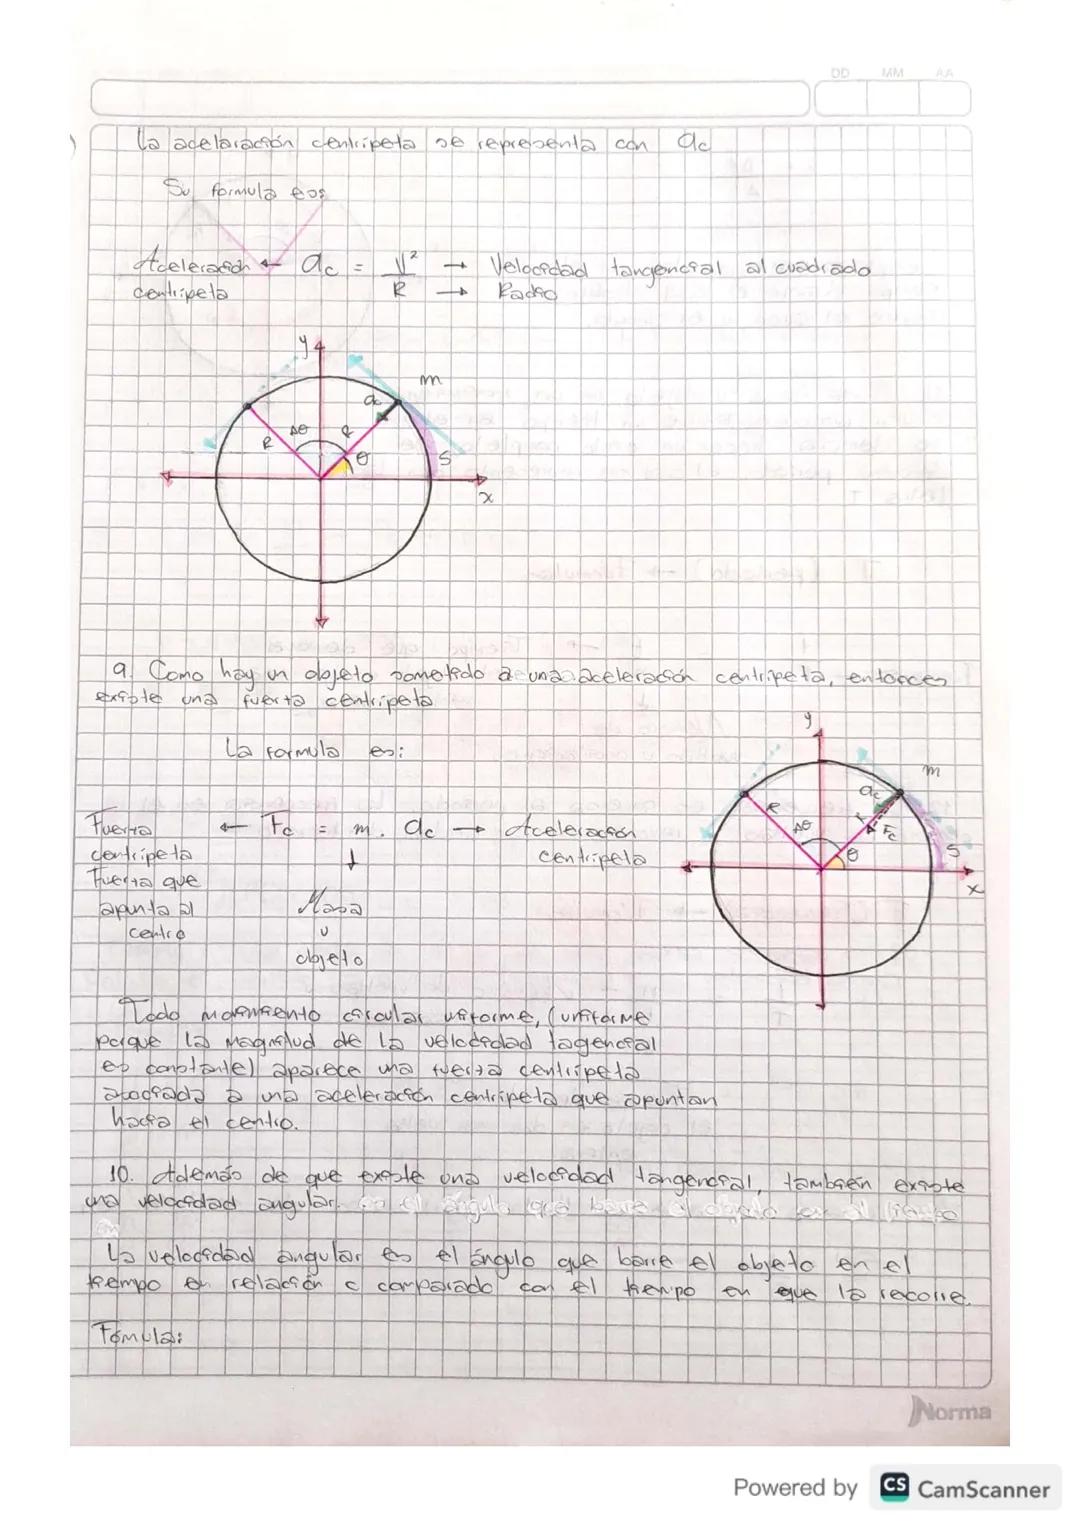 DD MM AA
La acelaración centrípeta se representa con ac
Su formula es:
Aceleración ← ac = V² → Velocidad tangencial al cuadrado
centripeta R → Radio
y
m
ac
R Δθ R
θ
S
x
9. Como hay un objeto sometido a una aceleración centrípeta, entonces
existe una fuerza centripeta
La formula es:
Fuerza ← Fc = m . ac → Aceleración
centripeta ↓ centripeta
Fuerza que
apunta al Masa
centro u
objeto
y
m
ac
R Δθ r Fc
θ
S
x
Todo movimiento circular uniforme, (uniforme
porque la magnitud de la velocidad tagencial
es constante) aparece una fuerza centripeta
asociada a una aceleración centripeta que apuntan
hacia el centro.
10. Además de que existe una velocidad tangencial, también existe
una velocidad angular. es el ángulo que barre el objeto en el tiempo
en
La velocidad angular es el ángulo que barre el objeto en el
tiempo en relación o comparado con el tiempo en que lo recorre.
Fórmula:
Norma
Powered by CS CamScanner